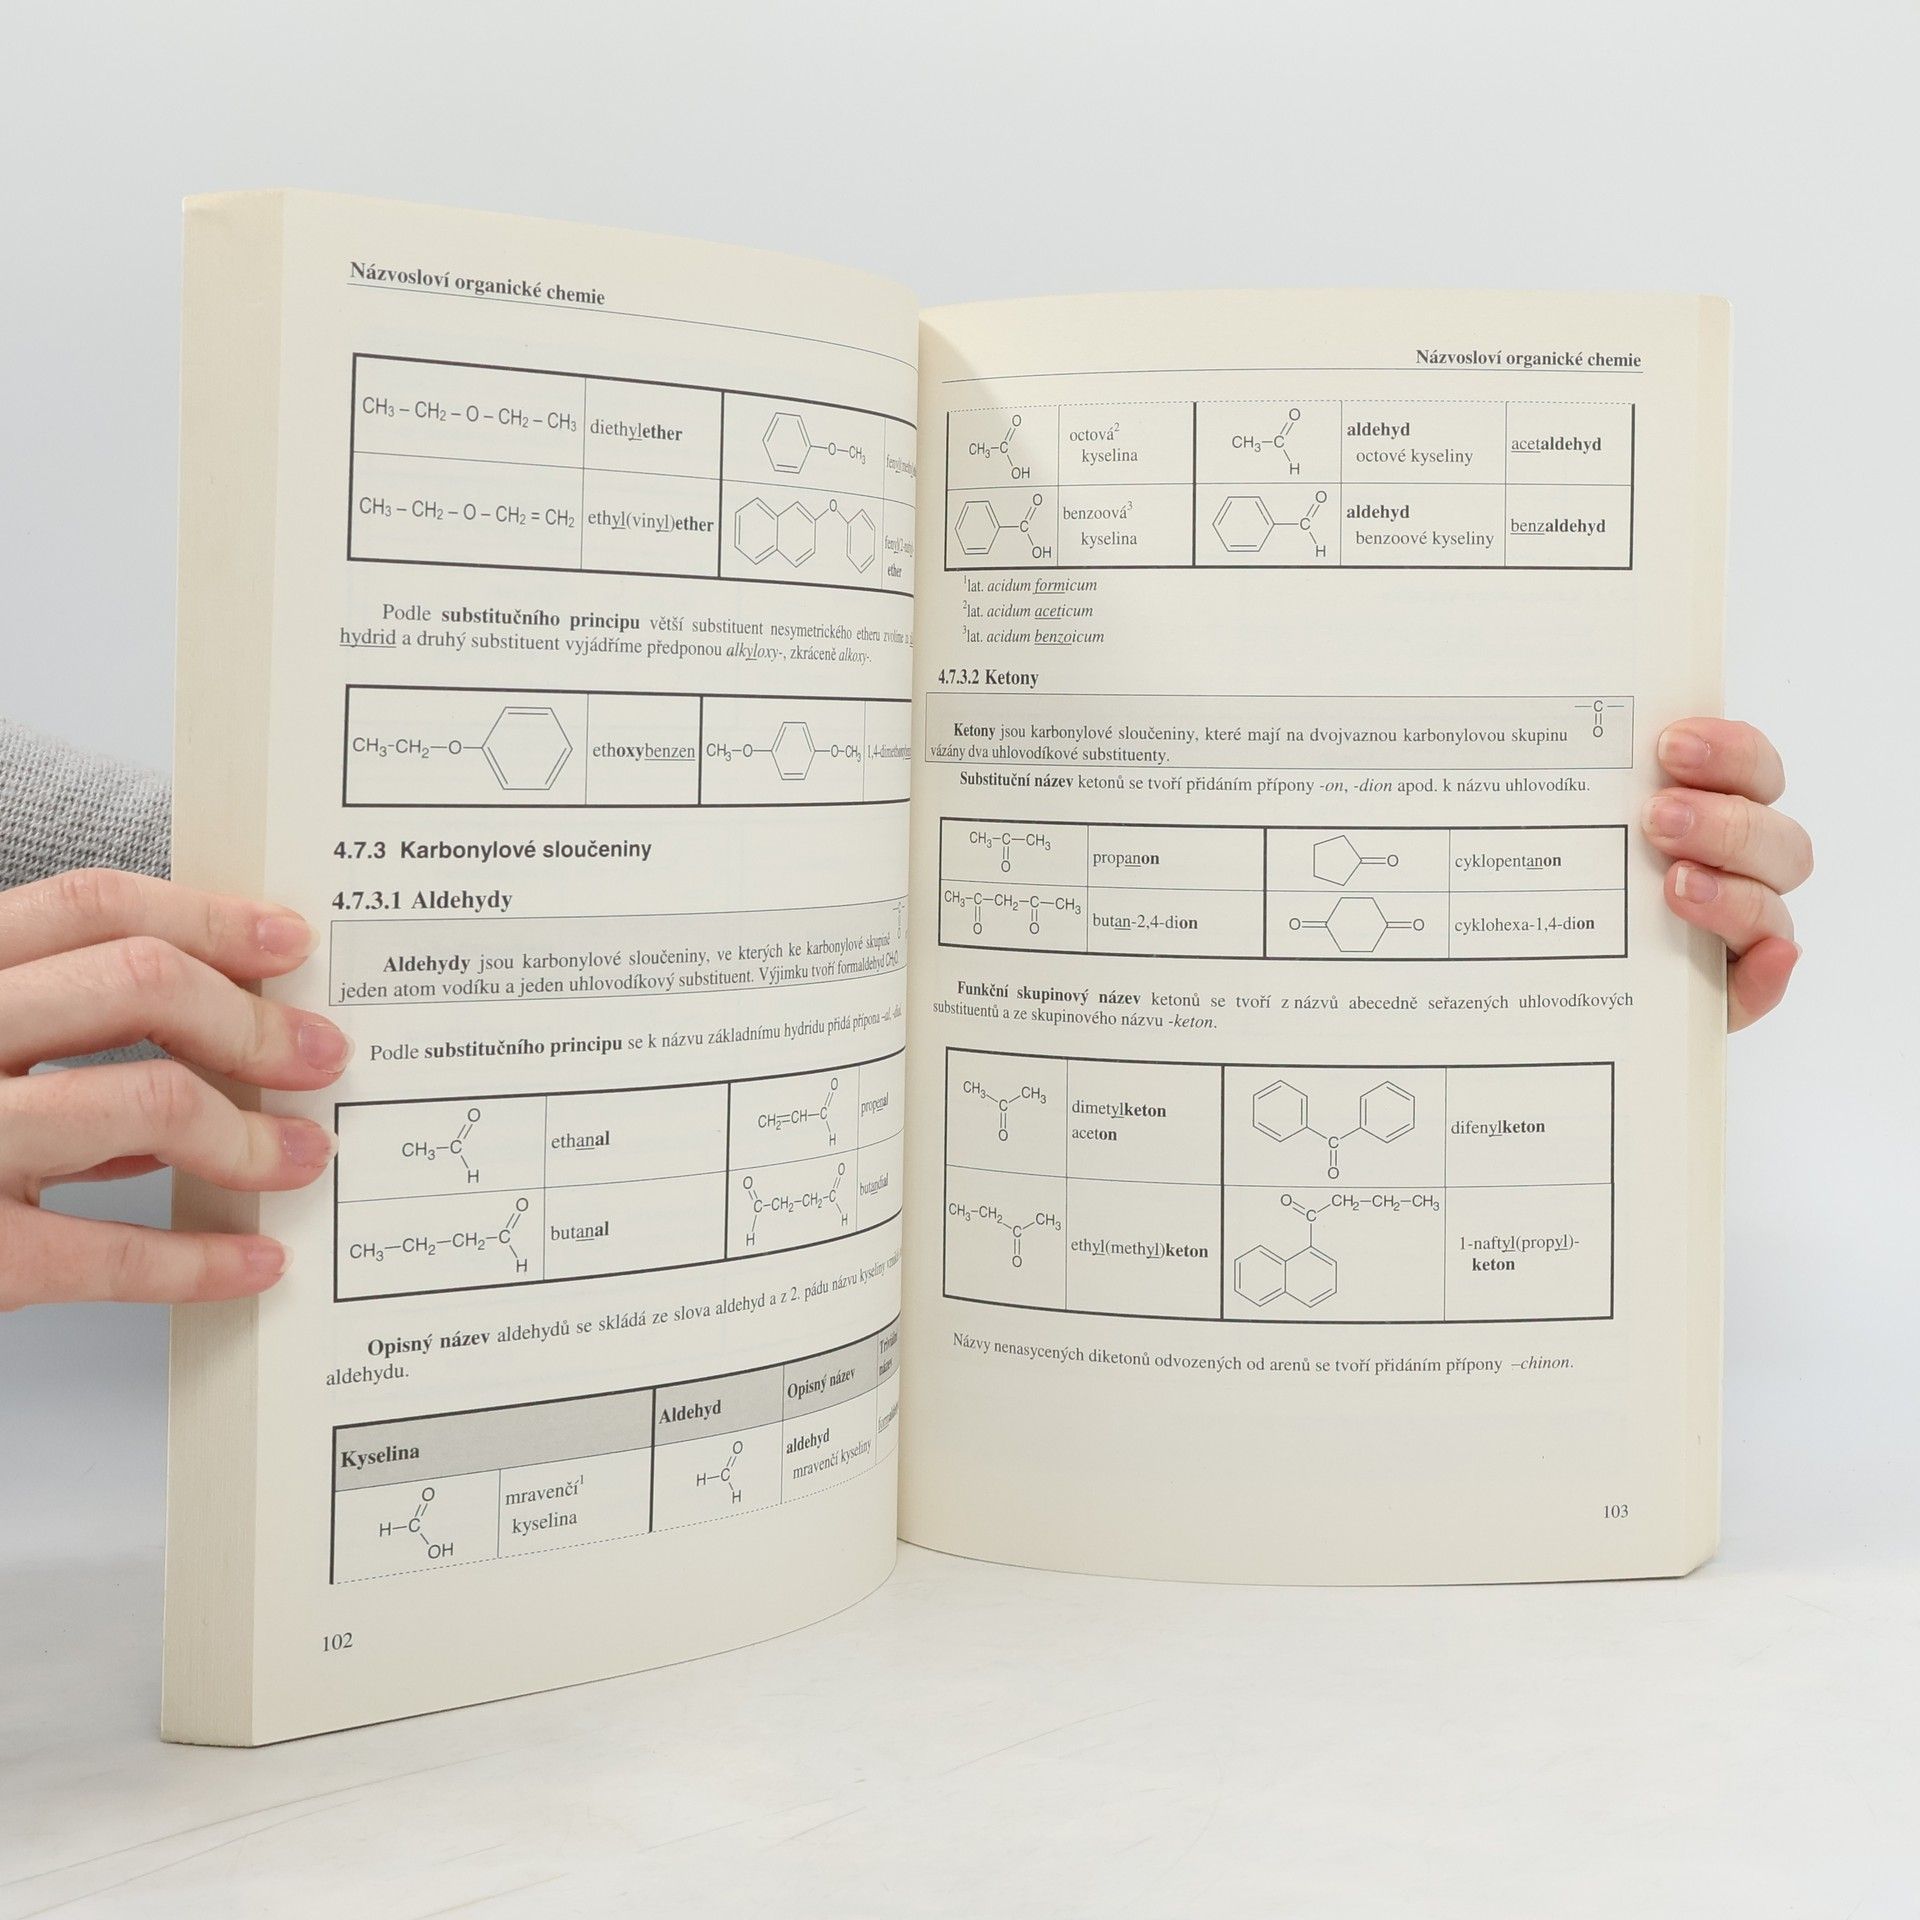 Názvosloví organické chemie
CH3 – CH2 – O – CH2 – CH3
diethylether
O–CH3
CH3 – CH2 – O – CH2 = CH2
ethyl(vinyl)ether
O
ether
Podle substitučního principu větší substituent nesymetrického etheru zvolíme
hydrid a druhý substituent vyjádříme předponou alkyloxy-, zkráceně alkoxy-.
CH3-CH2–O–
ethoxybenzen
CH3–O– –O-CH3
4.7.3 Karbonylové sloučeniny
4.7.3.1 Aldehydy
Aldehydy jsou karbonylové sloučeniny, ve kterých ke karbonylové skupině
jeden atom vodíku a jeden uhlovodíkový substituent. Výjimku tvoří formaldehyd CH2O.
Podle substitučního principu se k názvu základnímu hydridu přidá přípona –al, -dial.
CH3–C O H
ethanal
CH2=CH–C O H
propenal
CH3–CH2–CH2–C O H
butanal
O C–CH2–CH2–C O H H
butandial
Opisný název aldehydů se skládá ze slova aldehyd a z 2. pádu názvu kyseliny
aldehydu.
Kyselina
Aldehyd
Opisný název
Triviální
název
H–C O OH
mravenčí1
kyselina
H–C O H
aldehyd
mravenčí kyseliny
102
Názvosloví organické chemie
CH3–C O OH
octová2
kyselina
CH3–C O H
aldehyd
octové kyseliny
acetaldehyd
C O OH
benzoová3
kyselina
C O H
aldehyd
benzoové kyseliny
benzaldehyd
1lat. acidum formicum
2lat. acidum aceticum
3lat. acidum benzoicum
4.7.3.2 Ketony
–C–
O
Ketony jsou karbonylové sloučeniny, které mají na dvojvaznou karbonylovou skupinu
vázány dva uhlovodíkové substituenty.
Substituční název ketonů se tvoří přidáním přípony -on, -dion apod. k názvu uhlovodíku.
CH3–C–CH3
O
propanon
=O
cyklopentanon
CH3–C–CH2–C–CH3
O O
butan-2,4-dion
O= =O
cyklohexa-1,4-dion
Funkční skupinový název ketonů se tvoří z názvů abecedně seřazených uhlovodíkových
substituentů a ze skupinového názvu -keton.
CH3 C CH3
O
dimetylketon
aceton
C
O
difenylketon
CH3–CH2 C CH3
O
ethyl(methyl)keton
O C CH2–CH2–CH3
1-naftyl(propyl)-
keton
Názvy nenasycených diketonů odvozených od arenů se tvoří přidáním přípony –chinon.
103